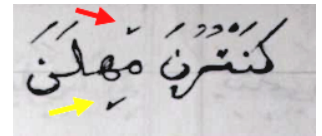 كَنَتُرِنَ مَهِلَنَ